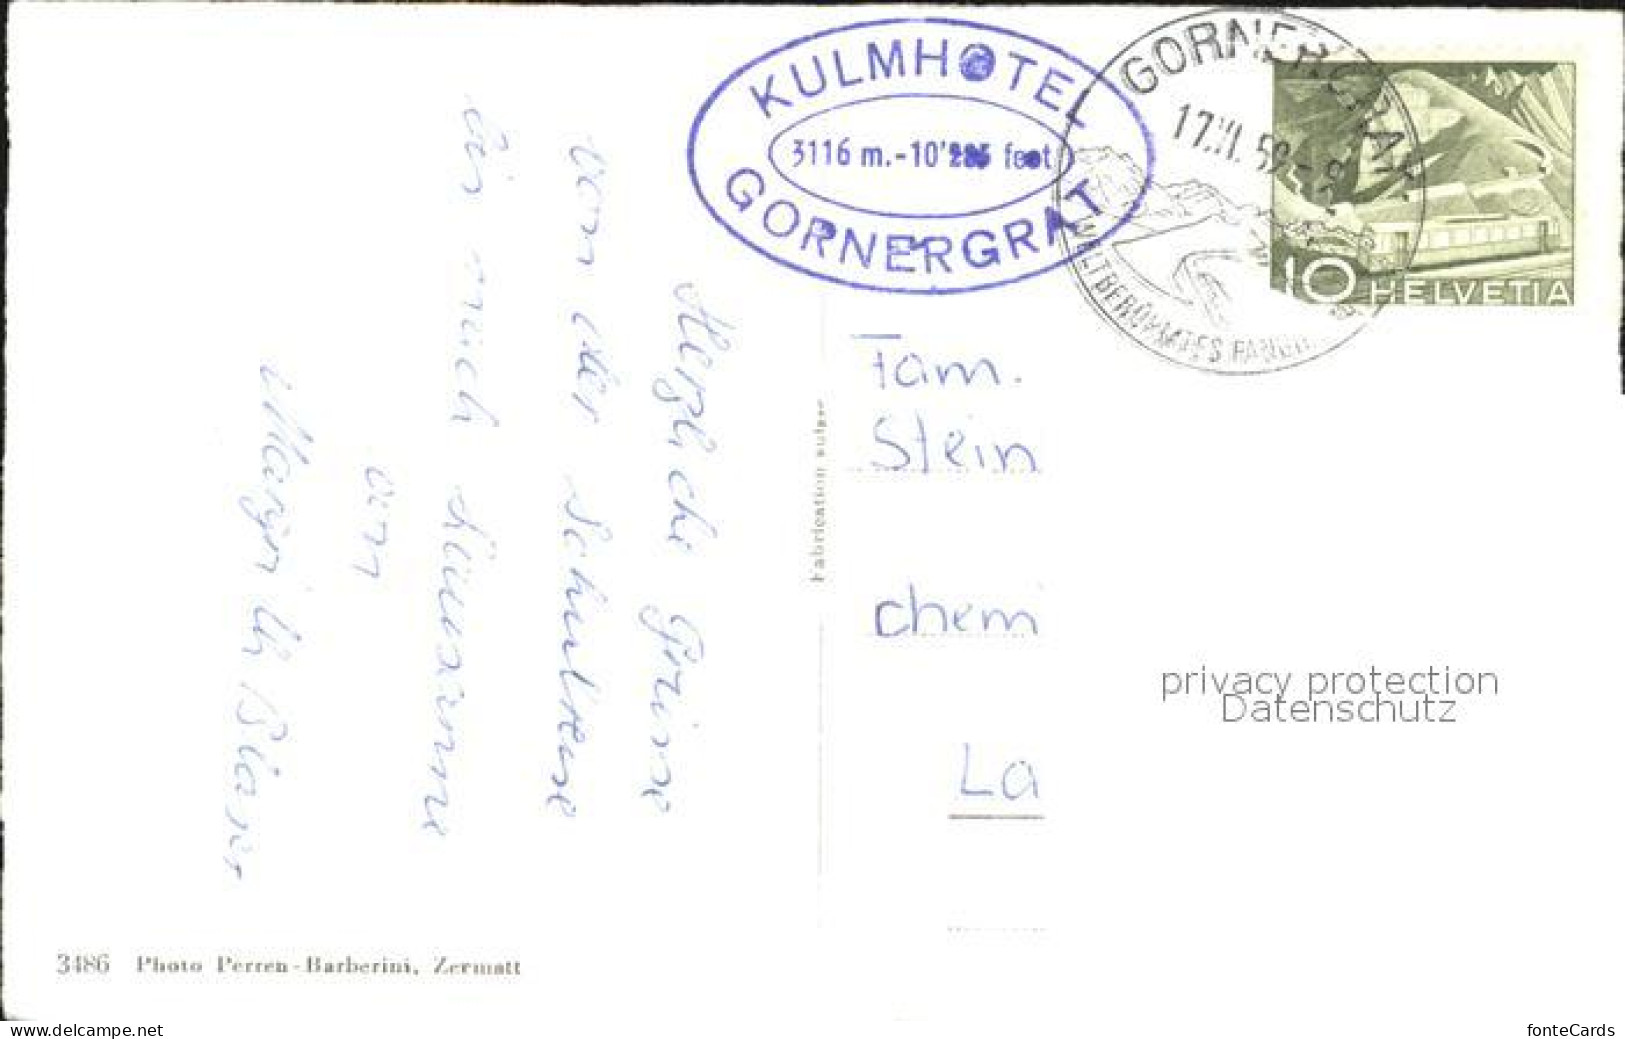 KULMHOTEL
3116 m.-10'225 feet
GORNERGRAT
GORNERGRAT
17.VI.59.-8
WELTBERÜHMTES PANOR
10 HELVETIA
Herzliche Grüsse
von der Schulreise
ein
Fam.
Stein
chemi
La
Fabrication suisse
privacy protection
Datenschutz
3486 Photo Perren-Barberini, Zermatt
www.delcampe.net
fonteCards